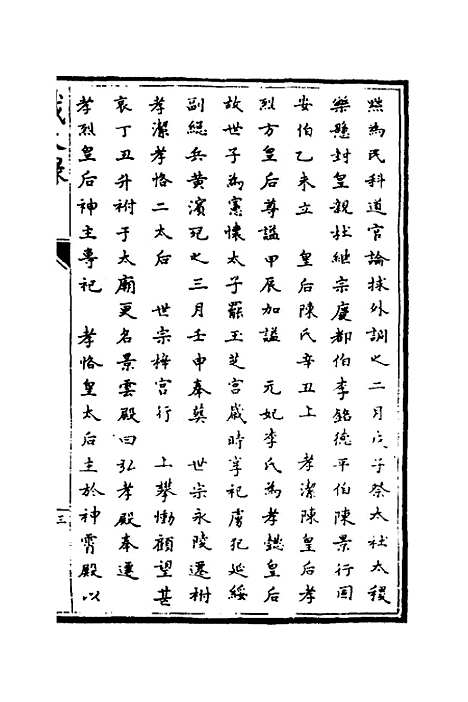 黜為民科道官論捄外調之二月戊子祭太社太稷
樂懸封皇親杜繼宗慶都伯李銘德平伯陳景行固
安伯乙未立　皇后陳氏辛丑上　孝潔陳皇后孝
烈方皇后尊謚甲辰加謚　元妃李氏為孝懿皇后
故世子為憲懷太子罷玉芝宮歲時享祀虜犯延綏
副總兵黃濱死之三月壬申奉葬　世宗永陵遷祔
孝潔孝恪二太后　世宗梓宮行　上攀慟顧望甚
哀丁丑升祔于太廟更名景雲殿曰弘孝殿奉遷
孝烈皇后神主專祀　孝恪皇太后主於神霄殿以
三